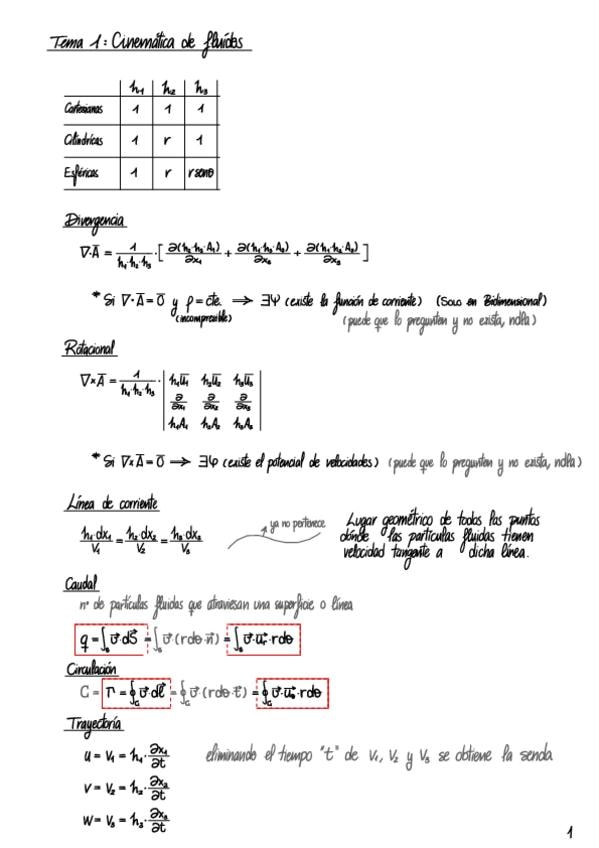 Tema 1: Cinemática de fluidos
h₁ h₂ h₃
Cartesianas 1 1 1
Cilíndricas 1 r 1
Esféricas 1 r r senθ
Divergencia
∇·A̅ = 1/(h₁·h₂·h₃) · [ ∂(h₂·h₃·A₁)/∂x₁ + ∂(h₁·h₃·A₂)/∂x₂ + ∂(h₁·h₂·A₃)/∂x₃ ]
* Si ∇·A̅ = 0̅ y ρ = cte. ⟹ ∃Ψ (existe la función de corriente) (Solo en Bidimensional)
(incompresible) (puede que lo pregunten y no exista, ndlPa)
Rotacional
∇×A̅ = 1/(h₁·h₂·h₃) · | h₁u̅₁ h₂u̅₂ h₃u̅₃ |
| ∂/∂x₁ ∂/∂x₂ ∂/∂x₃ |
| h₁A₁ h₂A₂ h₃A₃ |
* Si ∇×A̅ = 0̅ → ∃φ (existe el potencial de velocidades) (puede que lo pregunten y no exista, ndlPa)
Línea de corriente
h₁·dx₁/V₁ = h₂·dx₂/V₂ = h₃·dx₃/V₃
ya no pertenece
Lugar geométrico de todos los puntos
dónde las partículas fluidas tienen
velocidad tangente a dicha línea.
Caudal
nº de partículas fluidas que atraviesan una superficie o línea
q = ∫ₛ v⃗ dS⃗ = ∫ₛ v⃗ (r dθ n⃗) = ∫ₛ v⃗·u⃗ᵣ·r dθ
Circulación
C = Γ = ∮_G v⃗ dℓ⃗ = ∮_G v⃗ (r dθ t⃗) = ∮_G v⃗·u⃗_θ·r dθ
Trayectoría
u = V₁ = h₁·∂x₁/∂t eliminando el tiempo "t" de V₁, V₂ y V₃ se obtiene la senda
v = V₂ = h₂·∂x₂/∂t
w = V₃ = h₃·∂x₃/∂t
1